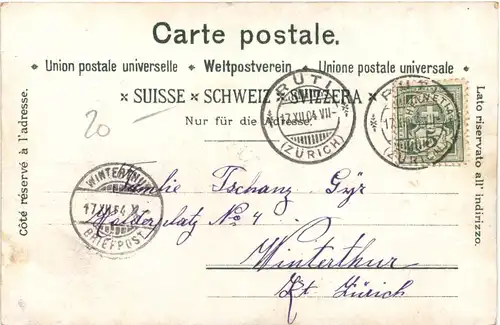 Carte postale.
Union postale universelle ✦ Weltpostverein ✦ Unione postale universale
SUISSE × SCHWEIZ × SVIZZERA
Nur für die Adresse.
Côté réservé à l'adresse.
Lato riservato all' indirizzo.
20
RUTI
17.XII.04.VII-
(ZÜRICH)
17
(ZÜRICH)
WINTERTHUR
17.XII.04.XI
BRIEFPOST
Familie Tschanz Gÿr
No 4
Winterthur
Kt. Zürich